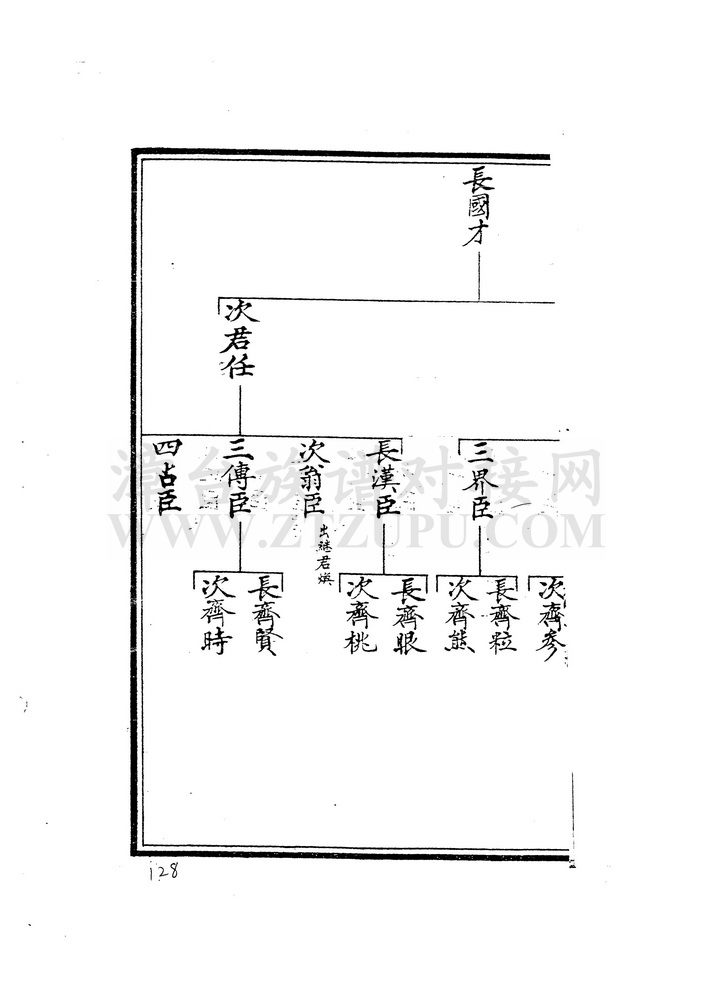 長國才
次君任
三界臣
長漢臣
次翁臣
出継君煥
三傳臣
四占臣
次齊參
長齊粒
次齊熊
長齊眼
次齊桃
長齊賢
次齊時
漳台族谱对接网
WWW.ZTZUPU.COM
128